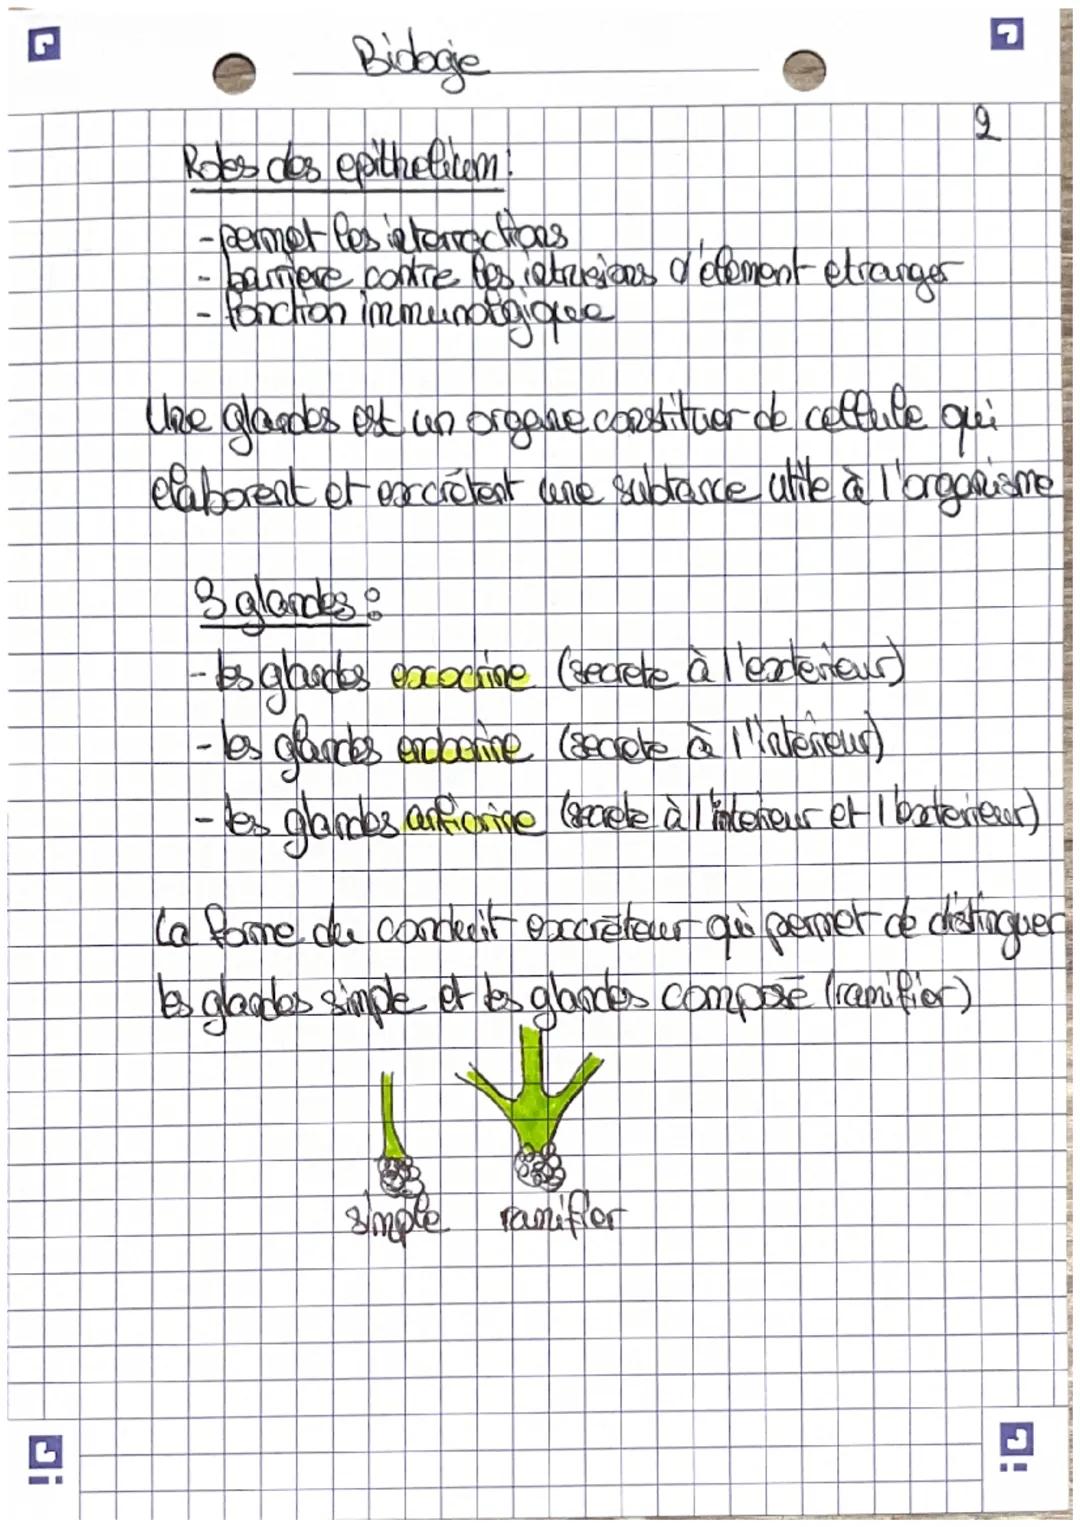 Biologie
2
Roles des epithelium :
- permet les interractions
- barriere contre les intrusions d'élement etranger
- fonction immunologique
Une glandes est un organe constituer de cellule qui
elaborent et excrètent une subtance utile à l'organisme
3 glandes :
- les glandes exocrine (secrete à l'exterieur)
- les glandes endocrine (secrete à l'interieur)
- les glandes amficrine (secrete à l'interieur et l'exterieur)
La forme du conduit excréteur qui permet de distinguer
les glandes simple et les glandes composé (ramifier)
simple ramifier